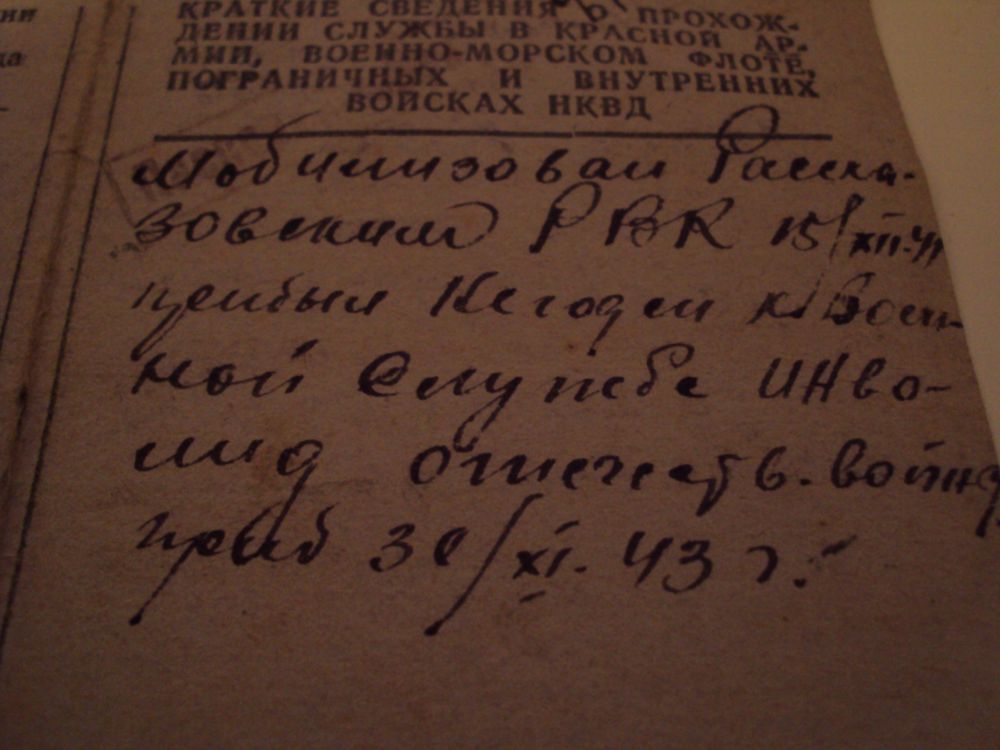 КРАТКИЕ СВЕДЕНИЯ О ПРОХОЖ-
ДЕНИИ СЛУЖБЫ В КРАСНОЙ АР-
МИИ, ВОЕННО-МОРСКОМ ФЛОТЕ,
ПОГРАНИЧНЫХ И ВНУТРЕННИХ
ВОЙСКАХ НКВД
Мобилизован Расска-
зовским РВК 15/XII.41
прибыл Негоден к Воен-
ной Службе ИНво-
лид отечеств. войны
приб 30/XI. 43 г.